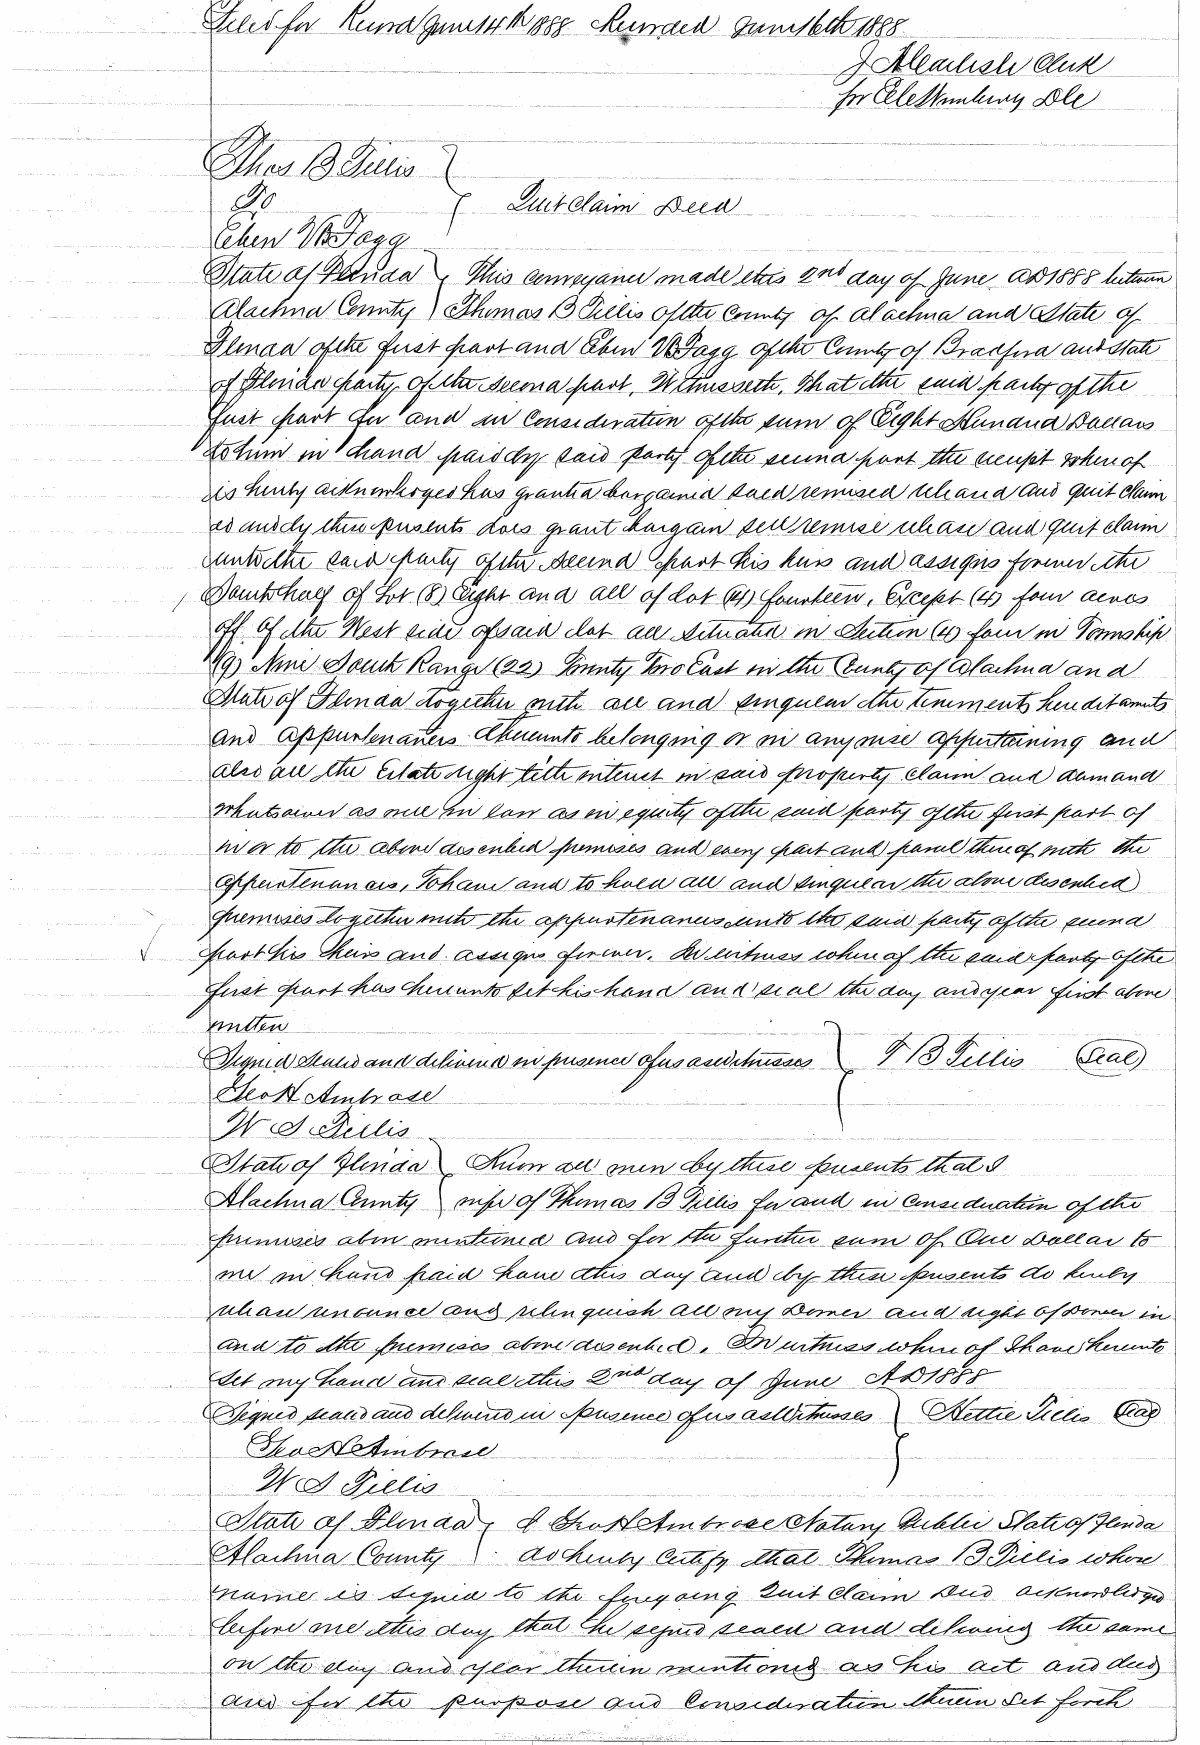 Filed for Record June 14th 1888 Recorded June 16th 1888
J A Carlisle Clerk
for
Thos B Tillis
To
Quit Claim Deed
Eben W Tagg
State of Florida This conveyance made this 2nd day of June AD 1888 between
Alachua County Thomas B Tillis of the County of Alachua and State of
Florida of the first part and Eben W Tagg of the County of Bradford and State
of Florida party of the second part, Witnesseth, That the said party of the
first part for and in Consideration of the sum of Eight Hundred Dollars
to him in hand paid by said party of the second part the receipt whereof
is hereby acknowledged has granted bargained sold remised released and quit claim
ed and by these presents does grant bargain sell remise release and quit claim
unto the said party of the second part his heirs and assigns forever the
South half of Lot (8) Eight and all of Lot (14) fourteen, Except (4) four acres
off of the West side of said lot all situated in Section (4) four in Township
(9) Nine South Range (22) Twenty Two East in the County of Alachua and
State of Florida together with all and singular the tenements hereditaments
and appurtenances thereunto belonging or in anywise appertaining and
also all the Estate right title interest in said property claim and demand
whatsoever as well in law as in equity of the said party of the first part of
in or to the above described premises and every part and parcel thereof with the
appurtenances, To have and to hold all and singular the above described
premises together with the appurtenances unto the said party of the second
part his heirs and assigns forever. In witness whereof the said party of the
first part has hereunto set his hand and seal the day and year first above
written
Signed Sealed and delivered in presence of us as witnesses T B Tillis (Seal)
Geo H Ambrose
W S Tillis
State of Florida Know all men by these presents that I
Alachua County wife of Thomas B Tillis for and in consideration of the
premises above mentioned and for the further sum of One Dollar to
me in hand paid have this day and by these presents do hereby
release renounce and relinquish all my Dower and right of Dower in
and to the premises above described. In witness whereof I have hereunto
set my hand and seal this 2nd day of June AD 1888
Signed sealed and delivered in presence of us as Witnesses Hettie Tillis (Seal)
Geo H Ambrose
W S Tillis
State of Florida I Geo H Ambrose Notary Public State of Florida
Alachua County do hereby Certify that Thomas B Tillis whose
name is signed to the foregoing Quit Claim Deed acknowledged
before me this day that he signed sealed and delivered the same
on the day and year therein mentioned as his act and deed
and for the purpose and Consideration therein set forth